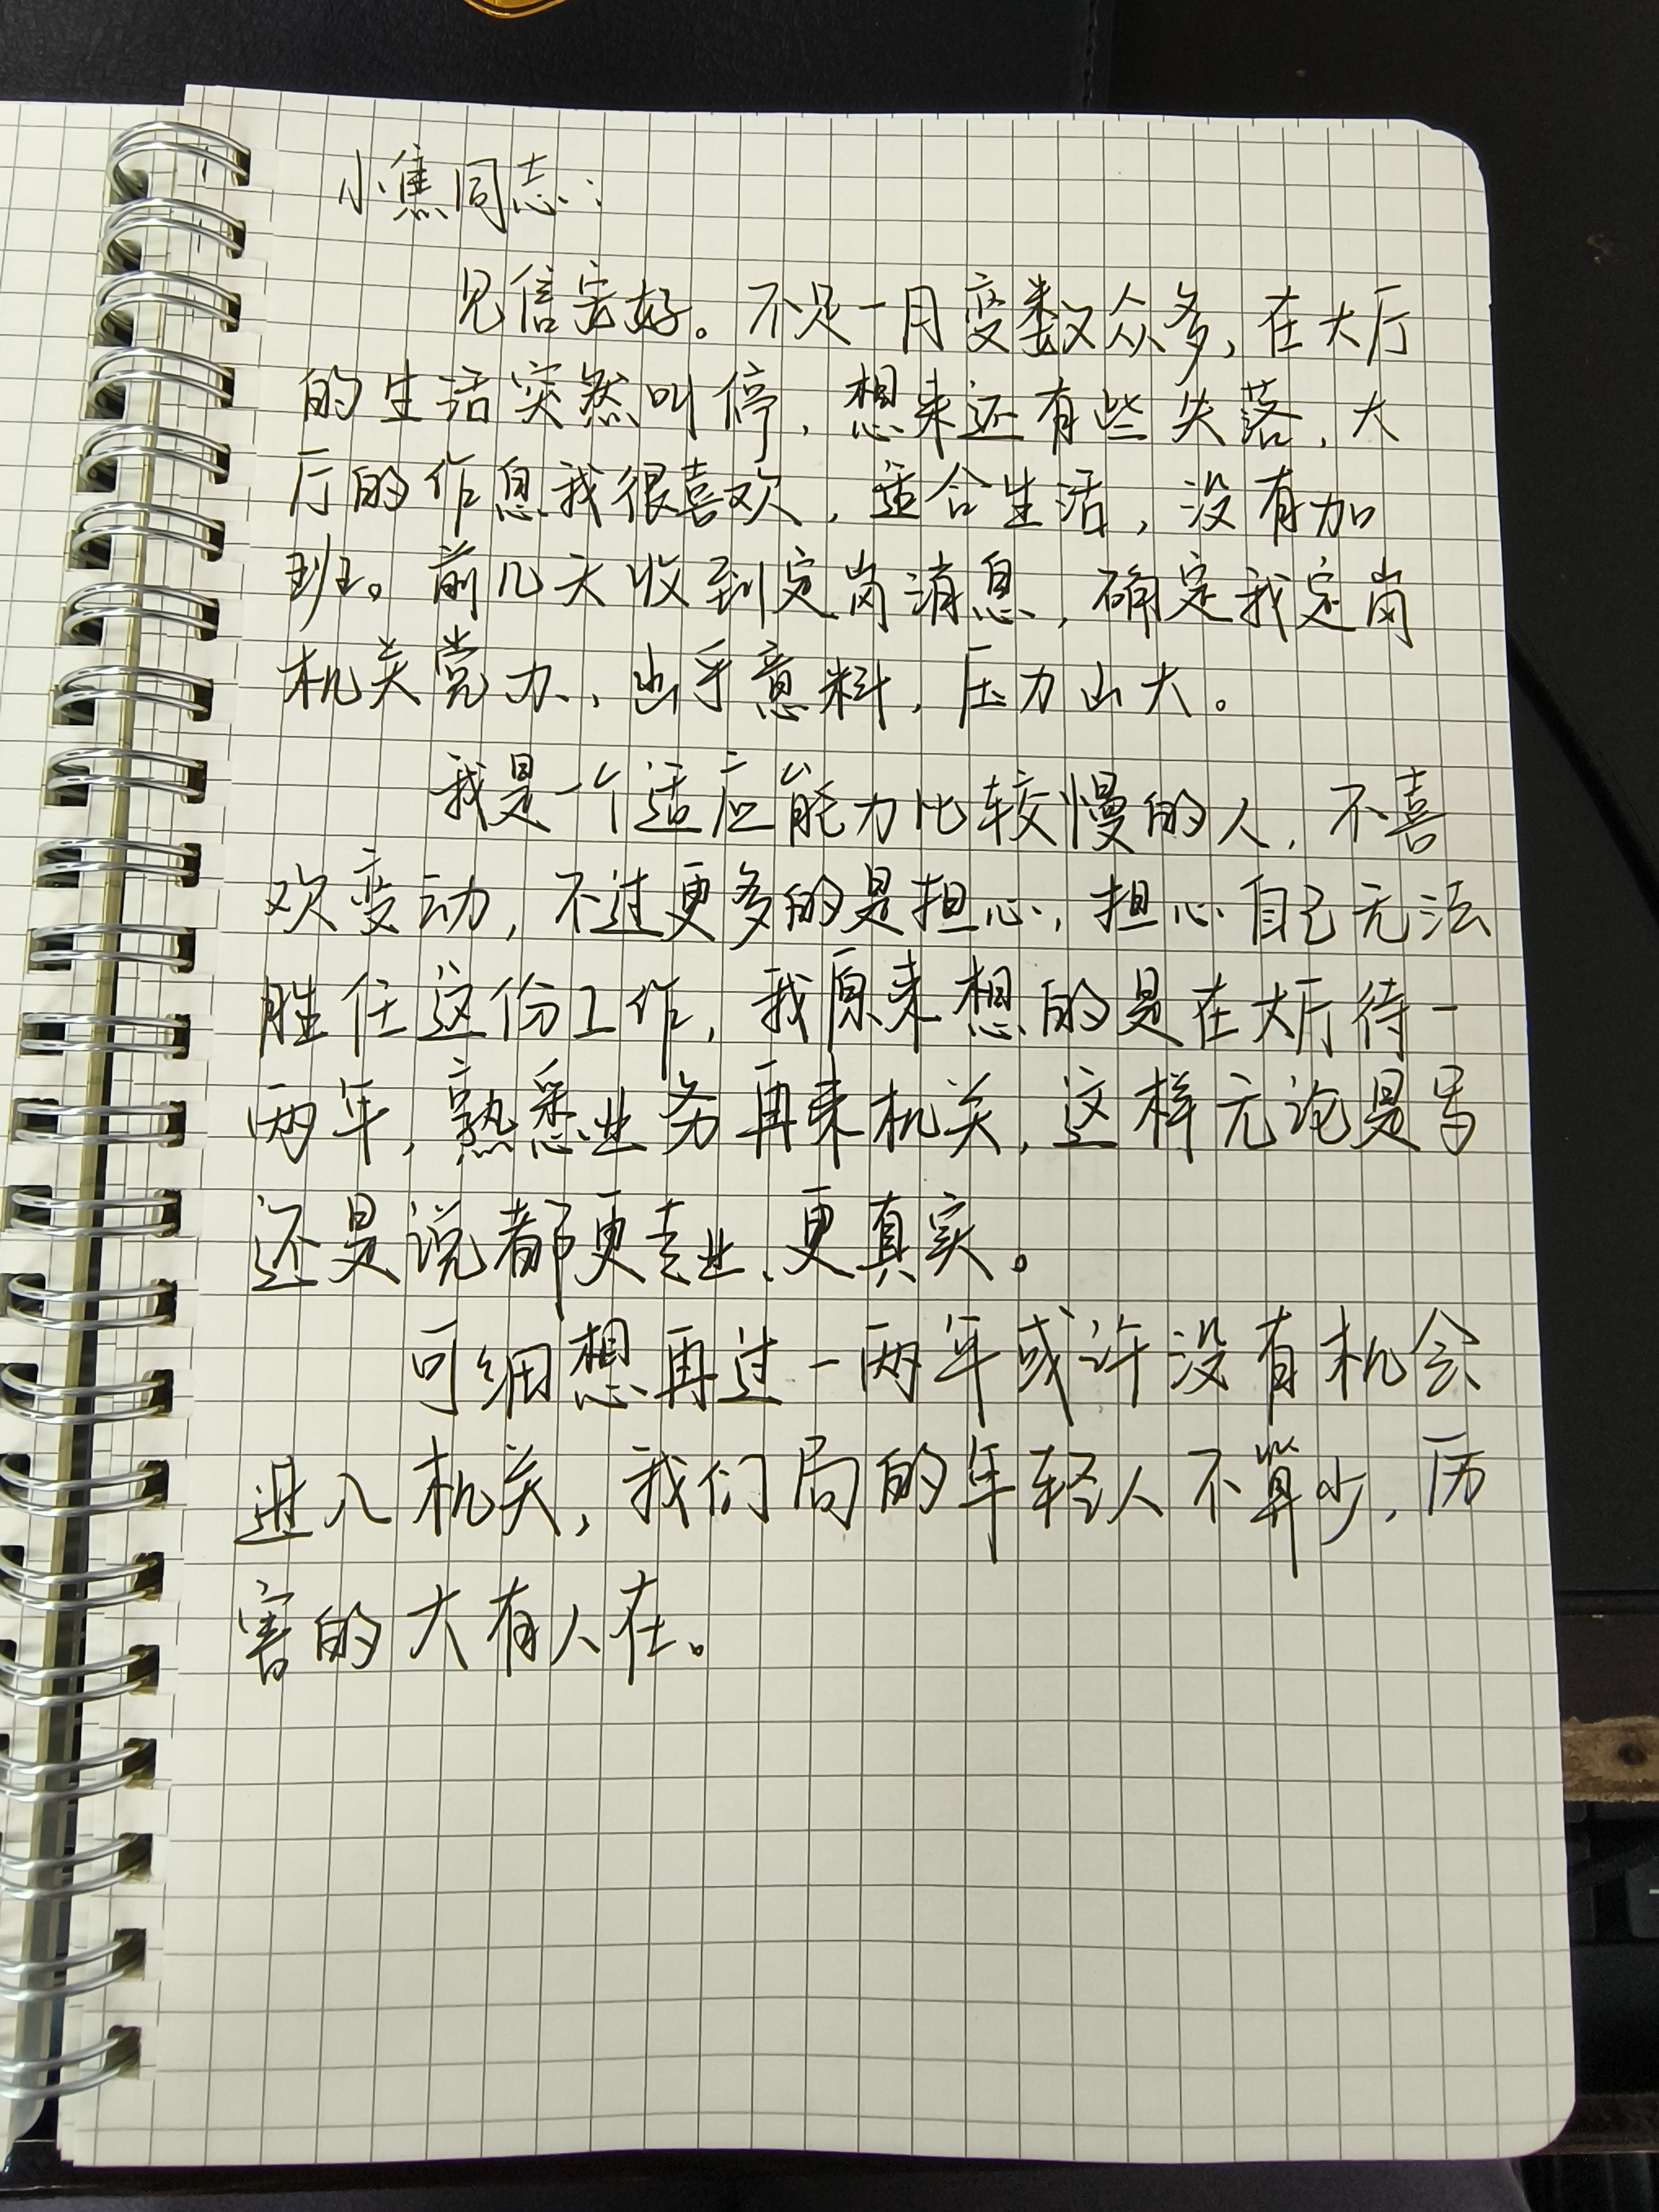 小焦同志：
见信安好。不足一月变数众多，在大厅
的生活突然叫停，想来还有些失落，大
厅的作息我很喜欢，适合生活，没有加
班。前几天收到定岗消息，确定我定岗
机关党办，出乎意料，压力山大。
我是一个适应能力比较慢的人，不喜
欢变动，不过更多的是担心，担心自己无法
胜任这份工作，我原来想的是在大厅待一
两年，熟悉业务再来机关，这样无论是写
还是说都更专业、更真实。
可细想再过一两年或许没有机会
进入机关，我们局的年轻人不算少，厉
害的大有人在。